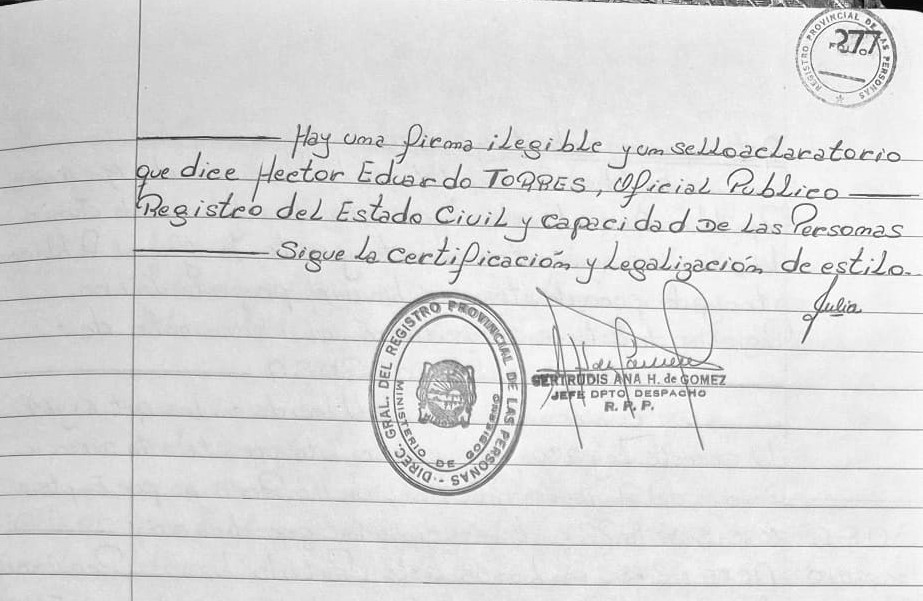 REGISTRO PROVINCIAL DE LAS PERSONAS
FOLIO
277
Hay una firma ilegible y un sello aclaratorio
que dice Hector Eduardo TORRES, Oficial Publico
Registro del Estado Civil y Capacidad De Las Personas
Sigue la certificación y Legalización de estilo.
Julia
DIREC. GRAL. DEL REGISTRO PROVINCIAL DE LAS PERSONAS
MINISTERIO DE GOBIERNO
GERTRUDIS ANA H. de GOMEZ
JEFE DPTO DESPACHO
R. P. P.